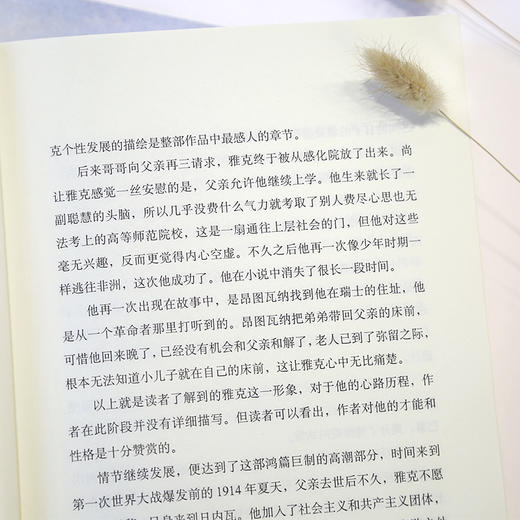 克个性发展的描绘是整部作品中最感人的章节。
后来哥哥向父亲再三请求，雅克终于被从感化院放了出来。尚
让雅克感觉一丝安慰的是，父亲允许他继续上学。他生来就长了一
副聪慧的头脑，所以几乎没费什么气力就考取了别人费尽心思也无
法考上的高等师范院校，这是一扇通往上层社会的门，但他对这些
毫无兴趣，反而更觉得内心空虚。不久之后他再一次像少年时期一
样逃往非洲，这次他成功了。他在小说中消失了很长一段时间。
他再一次出现在故事中，是昂图瓦纳找到他在瑞士的住址，他
是从一个革命者那里打听到的。昂图瓦纳把弟弟带回父亲的床前，
可惜他回来晚了，已经没有机会和父亲和解了，老人已到了弥留之际，
根本无法知道小儿子就在自己的床前，这让雅克心中无比痛楚。
以上就是读者了解到的雅克这一形象，对于他的心路历程，作
者在此阶段并没有详细描写。但读者可以看出，作者对他的才能和
性格是十分赞赏的。
情节继续发展，便达到了这部鸿篇巨制的高潮部分，时间来到
第一次世界大战爆发前的1914年夏天，父亲去世后不久，雅克不愿
只身来到日内瓦。他加入了社会主义和共产主义团体，